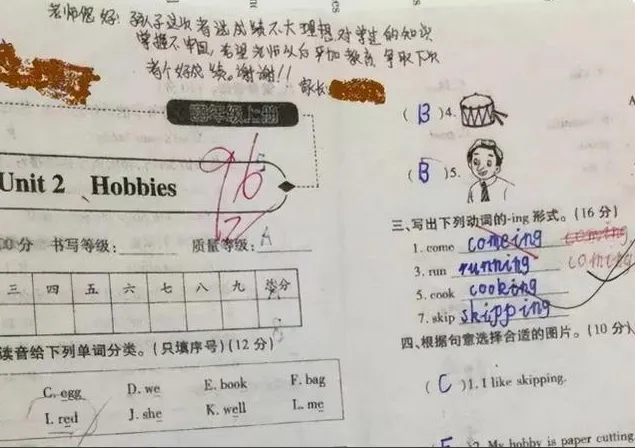 老师您好:孩子这次考试成绩不大理想,对学过的知识
掌握不牢固,希望老师以后严加教育,争取下次
考个好成绩。谢谢!!
家长
四年级上册
96
Unit 2 Hobbies
00分 书写等级: 质量等级: A
三 四 五 六 七 八 九 总分
读音给下列单词分类。(只填序号)(12分)
C. egg D. we E. book F. bag
I. red J. she K. well L. me
( B )4.
( B )5.
A
三、写出下列动词的-ing 形式。(16分)
1. come comeing coming
coming
3. run running
5. cook cooking
7. skip skipping
四、根据句意选择合适的图片。(10分)
( C )1. I like skipping.
2. My hobby is paper cutting